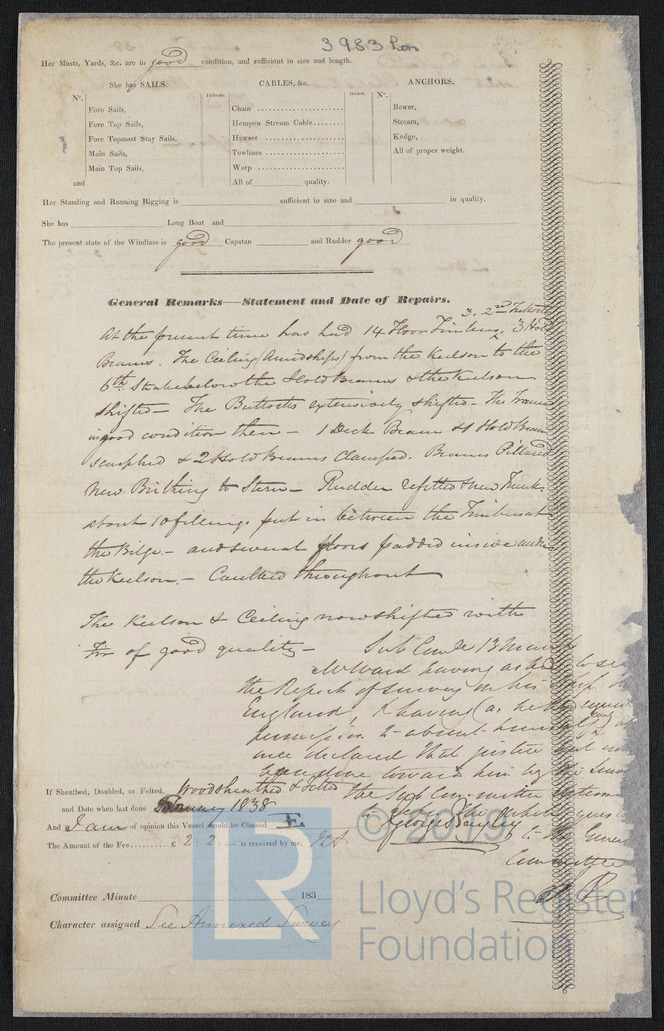 3983 Lon
Her Masts, Yards, &c. are in good condition, and sufficient in size and length.
She has SAILS. CABLES, &c. ANCHORS.
N°. Fathoms. Inches. N°.
Fore Sails, Chain Bower,
Fore Top Sails, Hempen Stream Cable Stream,
Fore Topmast Stay Sails, Hawser Kedge,
Main Sails, Towlines All of proper weight.
Main Top Sails, Warp
and All of quality.
Her Standing and Running Rigging is sufficient in size and in quality.
She has Long Boat and
The present state of the Windlass is good Capstan and Rudder good
General Remarks—Statement and Date of Repairs.
3. 2nd Futtocks
At the present time has had 14 Floor Timbers, 3 Hold
Beams. The Ceiling (Amidships) from the Keelson to the
6th Strake below the Hold Beams & the Keelson
shifted – The Buttocks extensively shifted – The Frame
in good condition then – 1 Deck Beam & 1 Hold Beam
scarphed & 2 Hold Beams Clamped. Beams Pillared
New Birthing to Stern – Rudder refitted & new Trunk
about 10 fillings put in between the Timbers at
the Bilge – and several floors padded inside under
the Keelson. – Caulked throughout
The Keelson & Ceiling now shifted with
Fir of good quality –
Sub Com 13 March
Mr Ward having asked to see
the Report of survey on his Ship
England, & having as he
permission to absent himself
once declared that justice
been done toward him by the
If Sheathed, Doubled, or Felted, Wood sheathed & felted
the Sub Committee
and Date when last done February 1838
And I am of opinion this Vessel should be Classed E.
George Bayley
to the General
The Amount of the Fee £ 2 : 2 : – is received by me,
Committee
© 2019
LR
Lloyd's Register
Foundation
Committee Minute 183
Character assigned See Annexed Survey